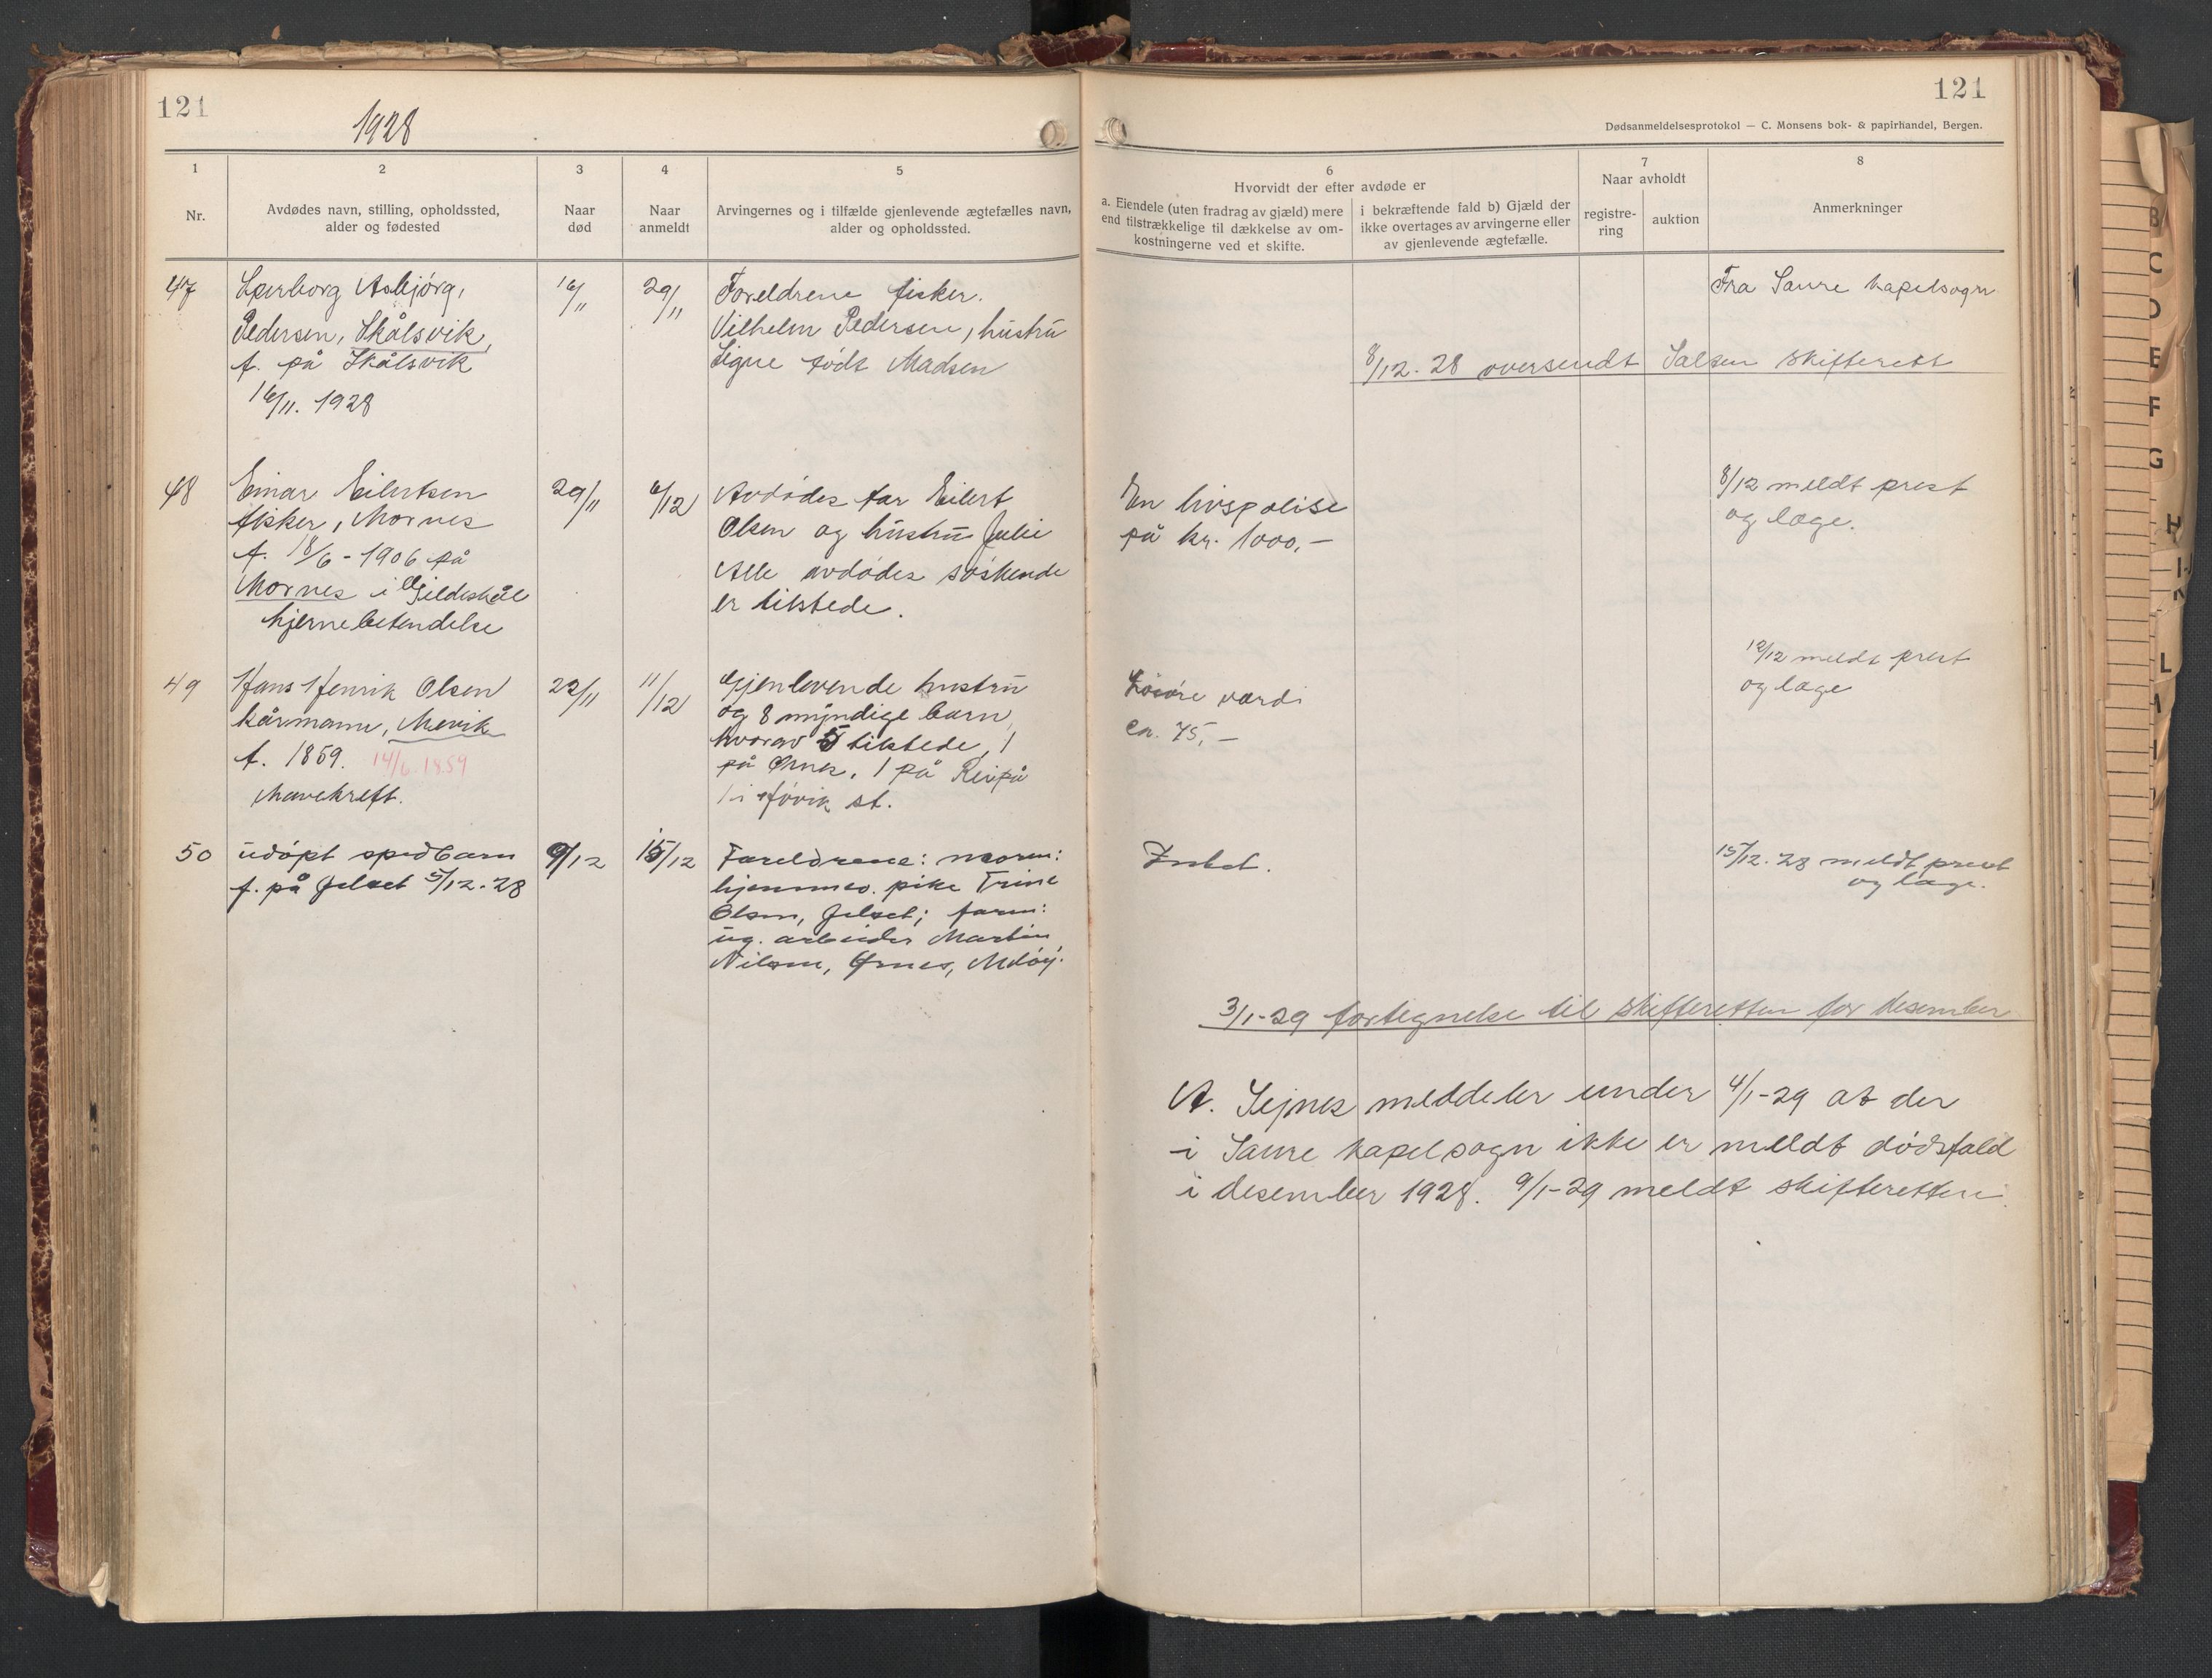 121
1928
121
Dødsanmeldelsesprotokol — C. Monsens bok- & papirhandel, Bergen.
1
Nr.
2
Avdødes navn, stilling, opholdssted,
alder og fødested
3
Naar
død
4
Naar
anmeldt
5
Arvingernes og i tilfælde gjenlevende ægtefælles navn,
alder og opholdssted.
6
Hvorvidt der efter avdøde er
a. Eiendele (uten fradrag av gjæld) mere
end tilstrækkelige til dækkelse av om-
kostningerne ved et skifte.
i bekræftende fald b) Gjæld der
ikke overtages av arvingerne eller
av gjenlevende ægtefælle.
7
Naar avholdt
registre-
ring
auktion
8
Anmerkninger
47
Asbjørg,
Pedersen, Skålsvik,
f. på Skålsvik
16/11. 1928
16/11
29/11
Foreldrene fisker.
Vilhelm Pedersen, hustru
Signe født Madsen
Fra Saure kapelsogn
8/12. 28 oversendt Salten skifterett
48
Einar Eilertsen
fisker, Mornes
f. 18/6 - 1906 på
Mornes i Gildeskål
hjernebetendelse
29/11
6/12
Avdødes far Eilert
Olsen og hustru Julie
Alle avdødes søskende
er tilstede.
En livspolise
på kr. 1000,-
8/12 meldt prest
og læge.
49
Hans Henrik Olsen
kårmann, Mevik
f. 1859. 14/6. 1859
Mavekreft.
22/11
11/12
Gjenlevende hustru
og 8 myndige barn,
hvorav 5 tilstede, 1
på Ørnes, 1 på Reipå
1 i st.
Løsøre værdi
ca. 75,-
12/12 meldt prest
og læge
50
udøpt spedbarn
f. på Jelset 5/12. 28
9/12
15/12
Foreldrene: moren:
hjemmev. pike Trine
Olsen, Jelset; faren:
ug. arbeider Martin
Nilsen, Ørnes, Meløy.
Intet.
15/12. 28 meldt prest
og læge.
3/1-29 fortegnelse til skifteretten for desember
A. Seines meddeler under 4/1-29 at der
i Saure kapelsogn ikke er meldt dødsfald
i desember 1928. 9/1-29 meldt skifteretten.
B
C
D
E
F
G
H
L